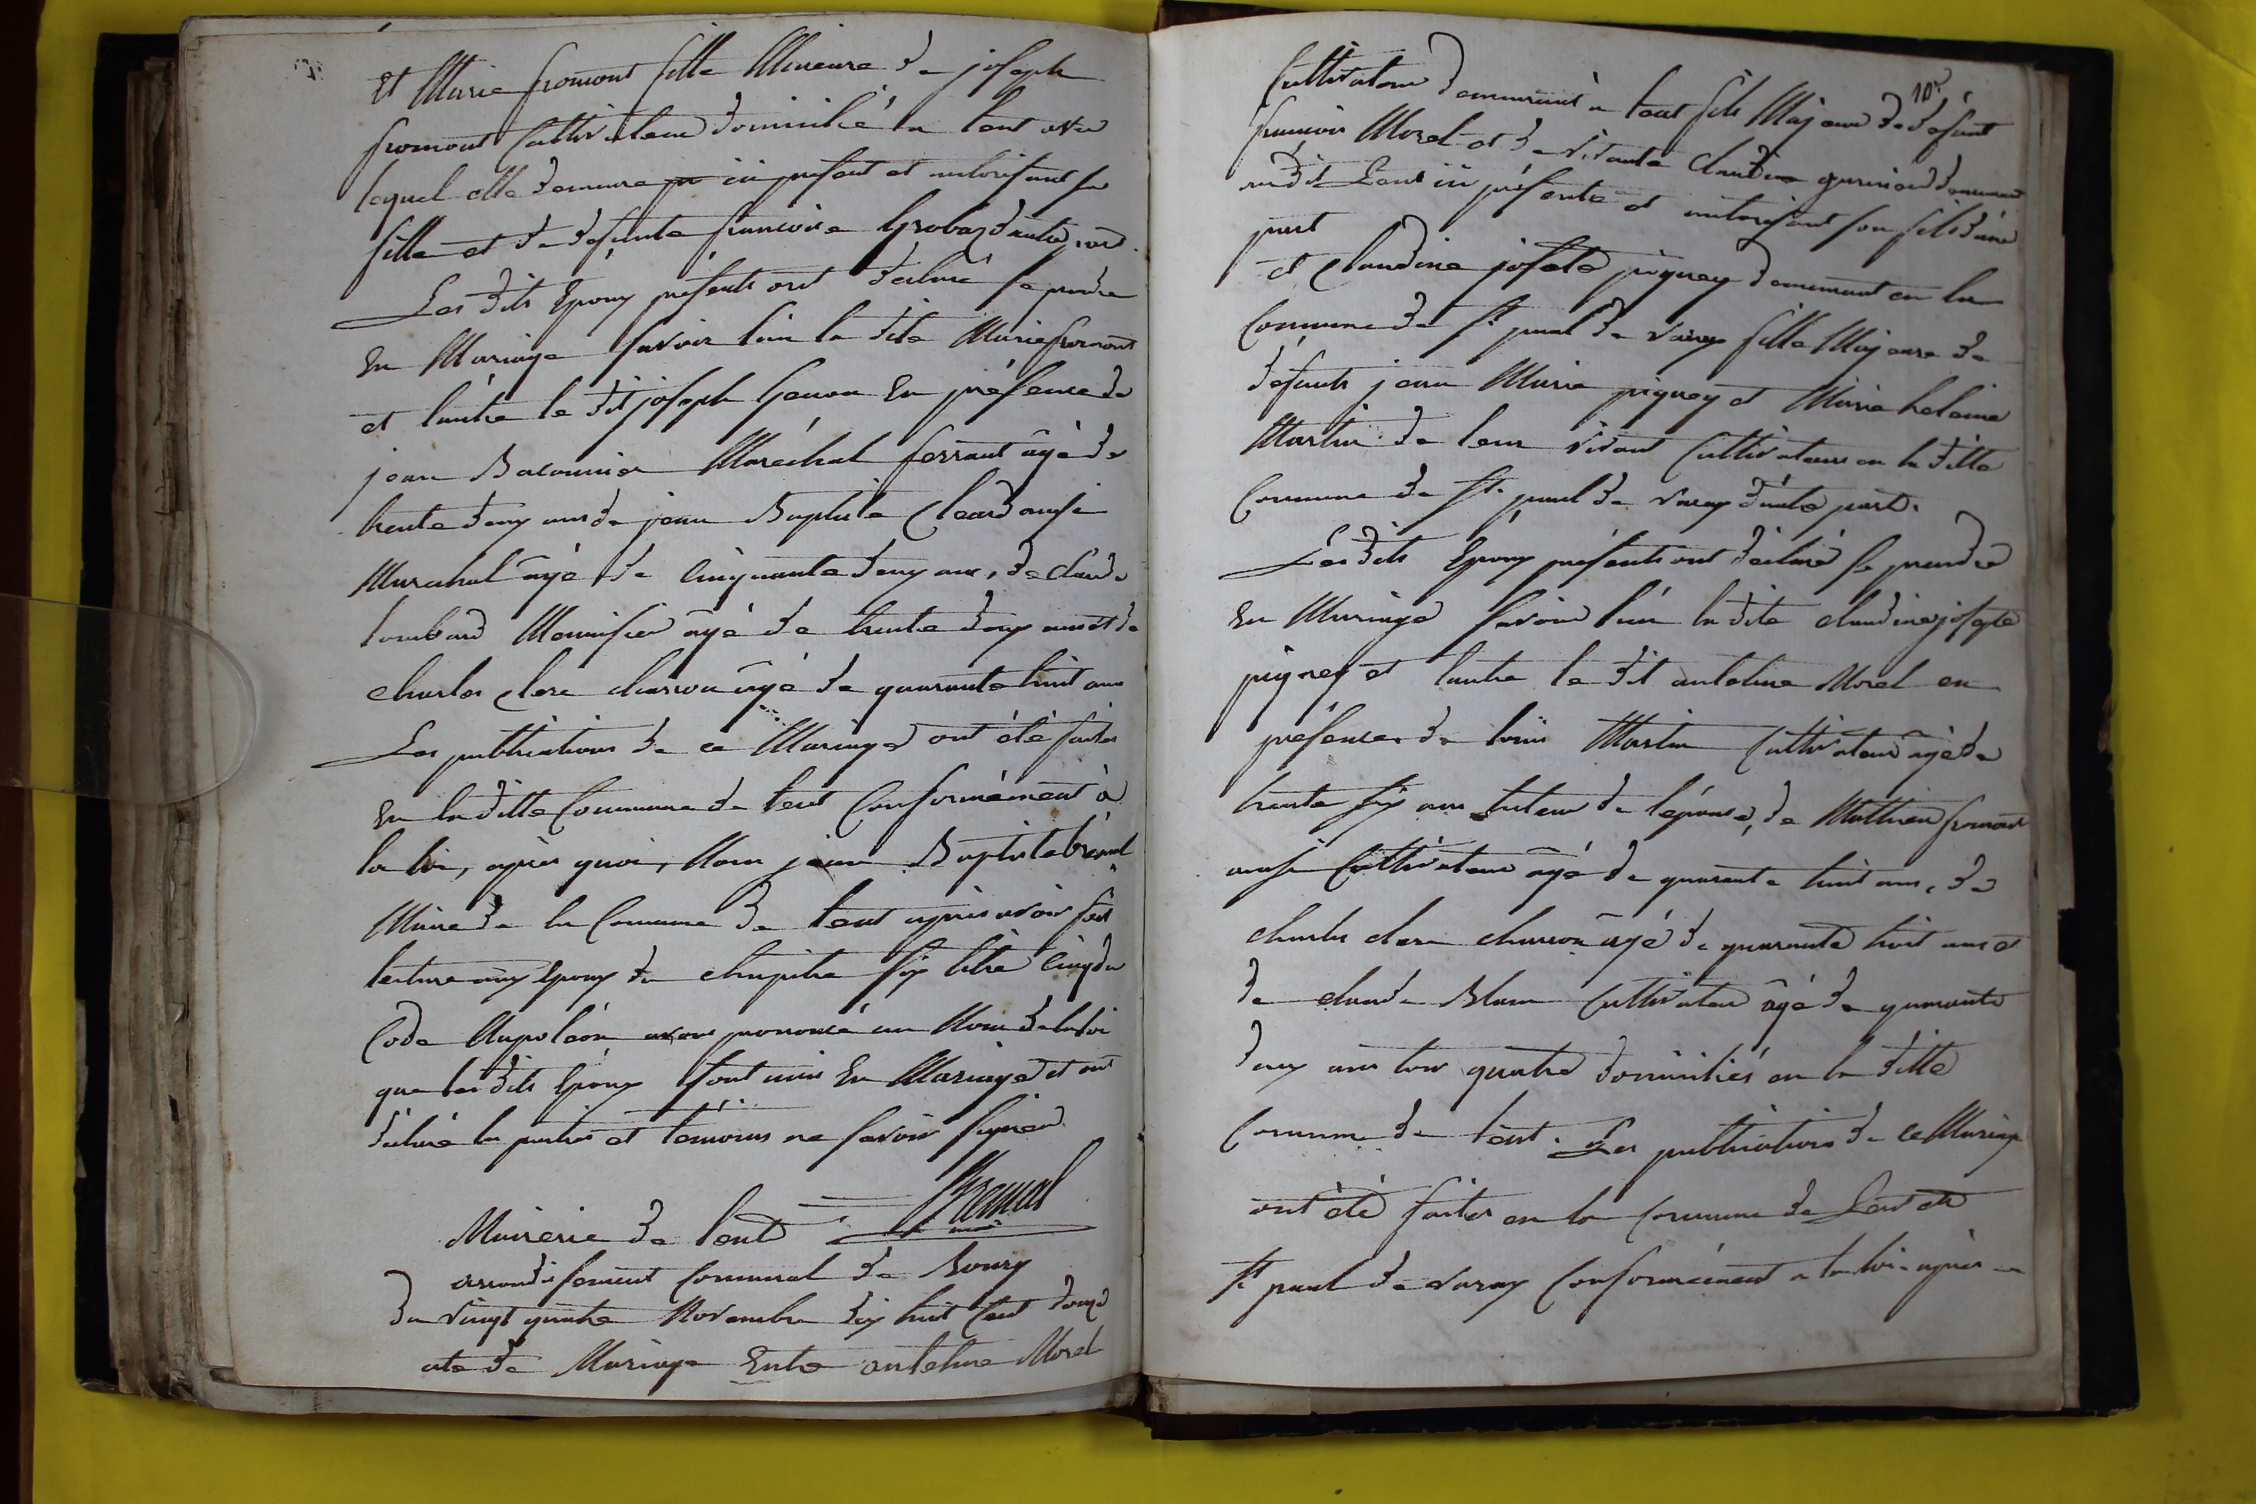 et Marie fromont fille Mineure de joseph
fromont Cultivateur domicilié a lent avec
lequel elle demeure ici présent et autorisant sa
fille et de défunte francoise Grobaz d'autre part.
Les dits Epoux présents ont déclaré se prendre
En Mariage savoir l'un la dite Marie fromont
et l'autre le dit joseph En présence de
jean Maréchal ferrant âgé de
trente deux ans de jean Baptiste Cleard aussi
Marechal âgé de Cinquante deux ans, de claude
lombard Mounier âgé de trente deux ans et de
charles clerc charron âgé de quarante huit ans
Les publications de ce Mariage ont été faites
En la ditte Commune de lent Conformément à
la loi, après quoi, Nous jean Baptiste brémal
Maire de la Commune de lent après avoir fait
lecture aux Epoux du chapitre six titre Cinq du
Code Napoléon avons prononcé au Nom de la loi
que les dits Epoux sont unis En Mariage et ont
déclaré les parties et témoins ne savoir signer
Bremal
Mairerie de lent
arrondissement Communal de Bourg
Du vingt quatre Novembre dix huit Cent douze
acte de Mariage Entre antelme Morel
10
Cultivateur demeurant à lent fils Majeur de défunt
francois Morel et de vivante Claudine demeurant
au dit Lent ici présente et autorisant son fils d'une
part
et Claudine josete piguey demeurant en la
Commune de St. paul de varax fille Majeure de
défunts jean Marie piguey et Marie helaine
Martin de leur vivant Cultivateurs en la ditte
Commune de St. paul de varax d'autre part.
Les dits Epoux présents ont déclaré se prendre
En Mariage savoir l'un la dite claudine josete
piguey et l'autre le dit antelme Morel en
présence de louis Martin Cultivateur âgé de
trente six ans tuteur de l'épouse, de Mathieu fromont
aussi Cultivateur âgé de quarante huit ans, de
charles clerc charron âgé de quarante huit ans et
de claude Blanc Cultivateur âgé de quarante
deux ans tous quatre domiciliés en la ditte
Commune de lent. Les publications de ce Mariage
ont été faites en la Commune de Lent et de
St paul de varax Conformément a la loi après